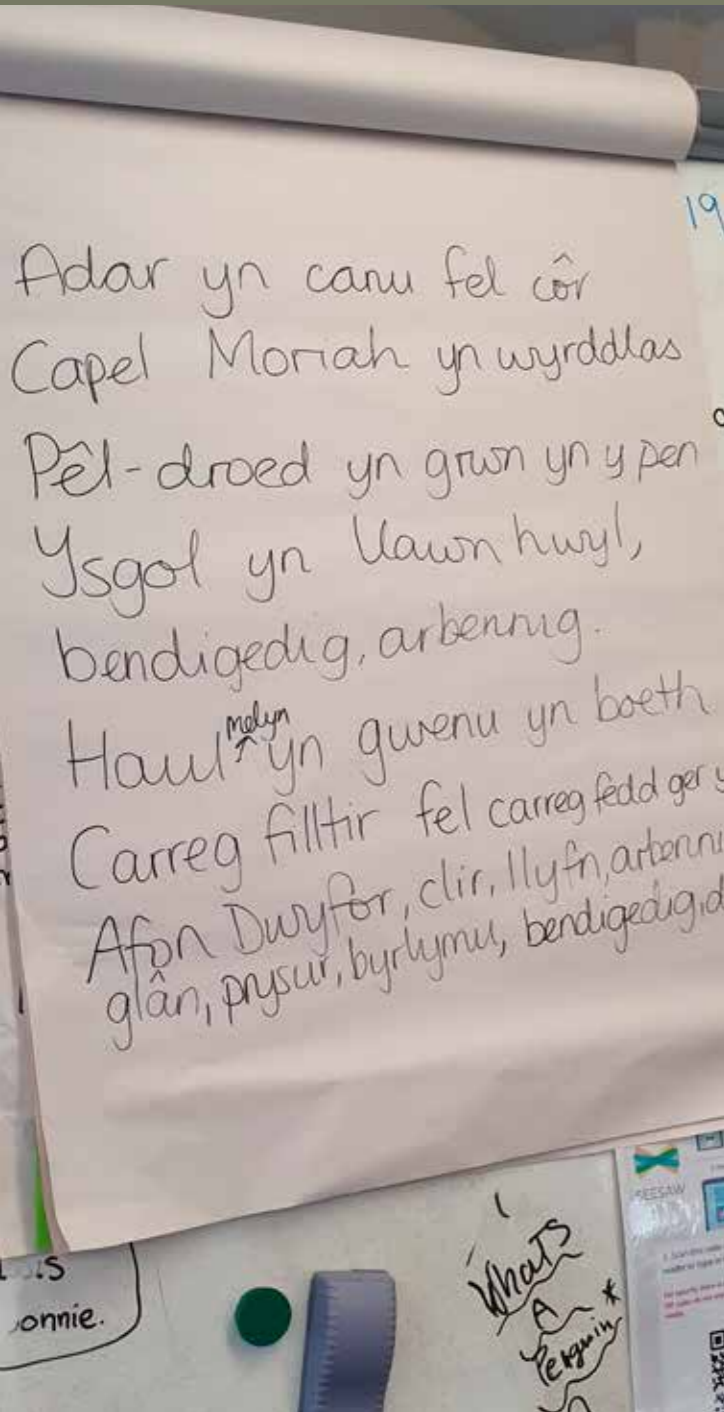 19
Adar yn canu fel côr
Capel Moriah yn wyrddlas
Pêl-droed yn grwn yn y pen
Ysgol yn llawn hwyl,
bendigedig, arbennig.
melyn
Haul ^ yn gwenu yn boeth
Carreg filltir fel carreg fedd ger y
Afon Dwyfor, clir, llyfn, arbenni
glân, prysur, byrlymu, bendigedig, d
onnie.
Whats
A
Penguin *
SEESAW